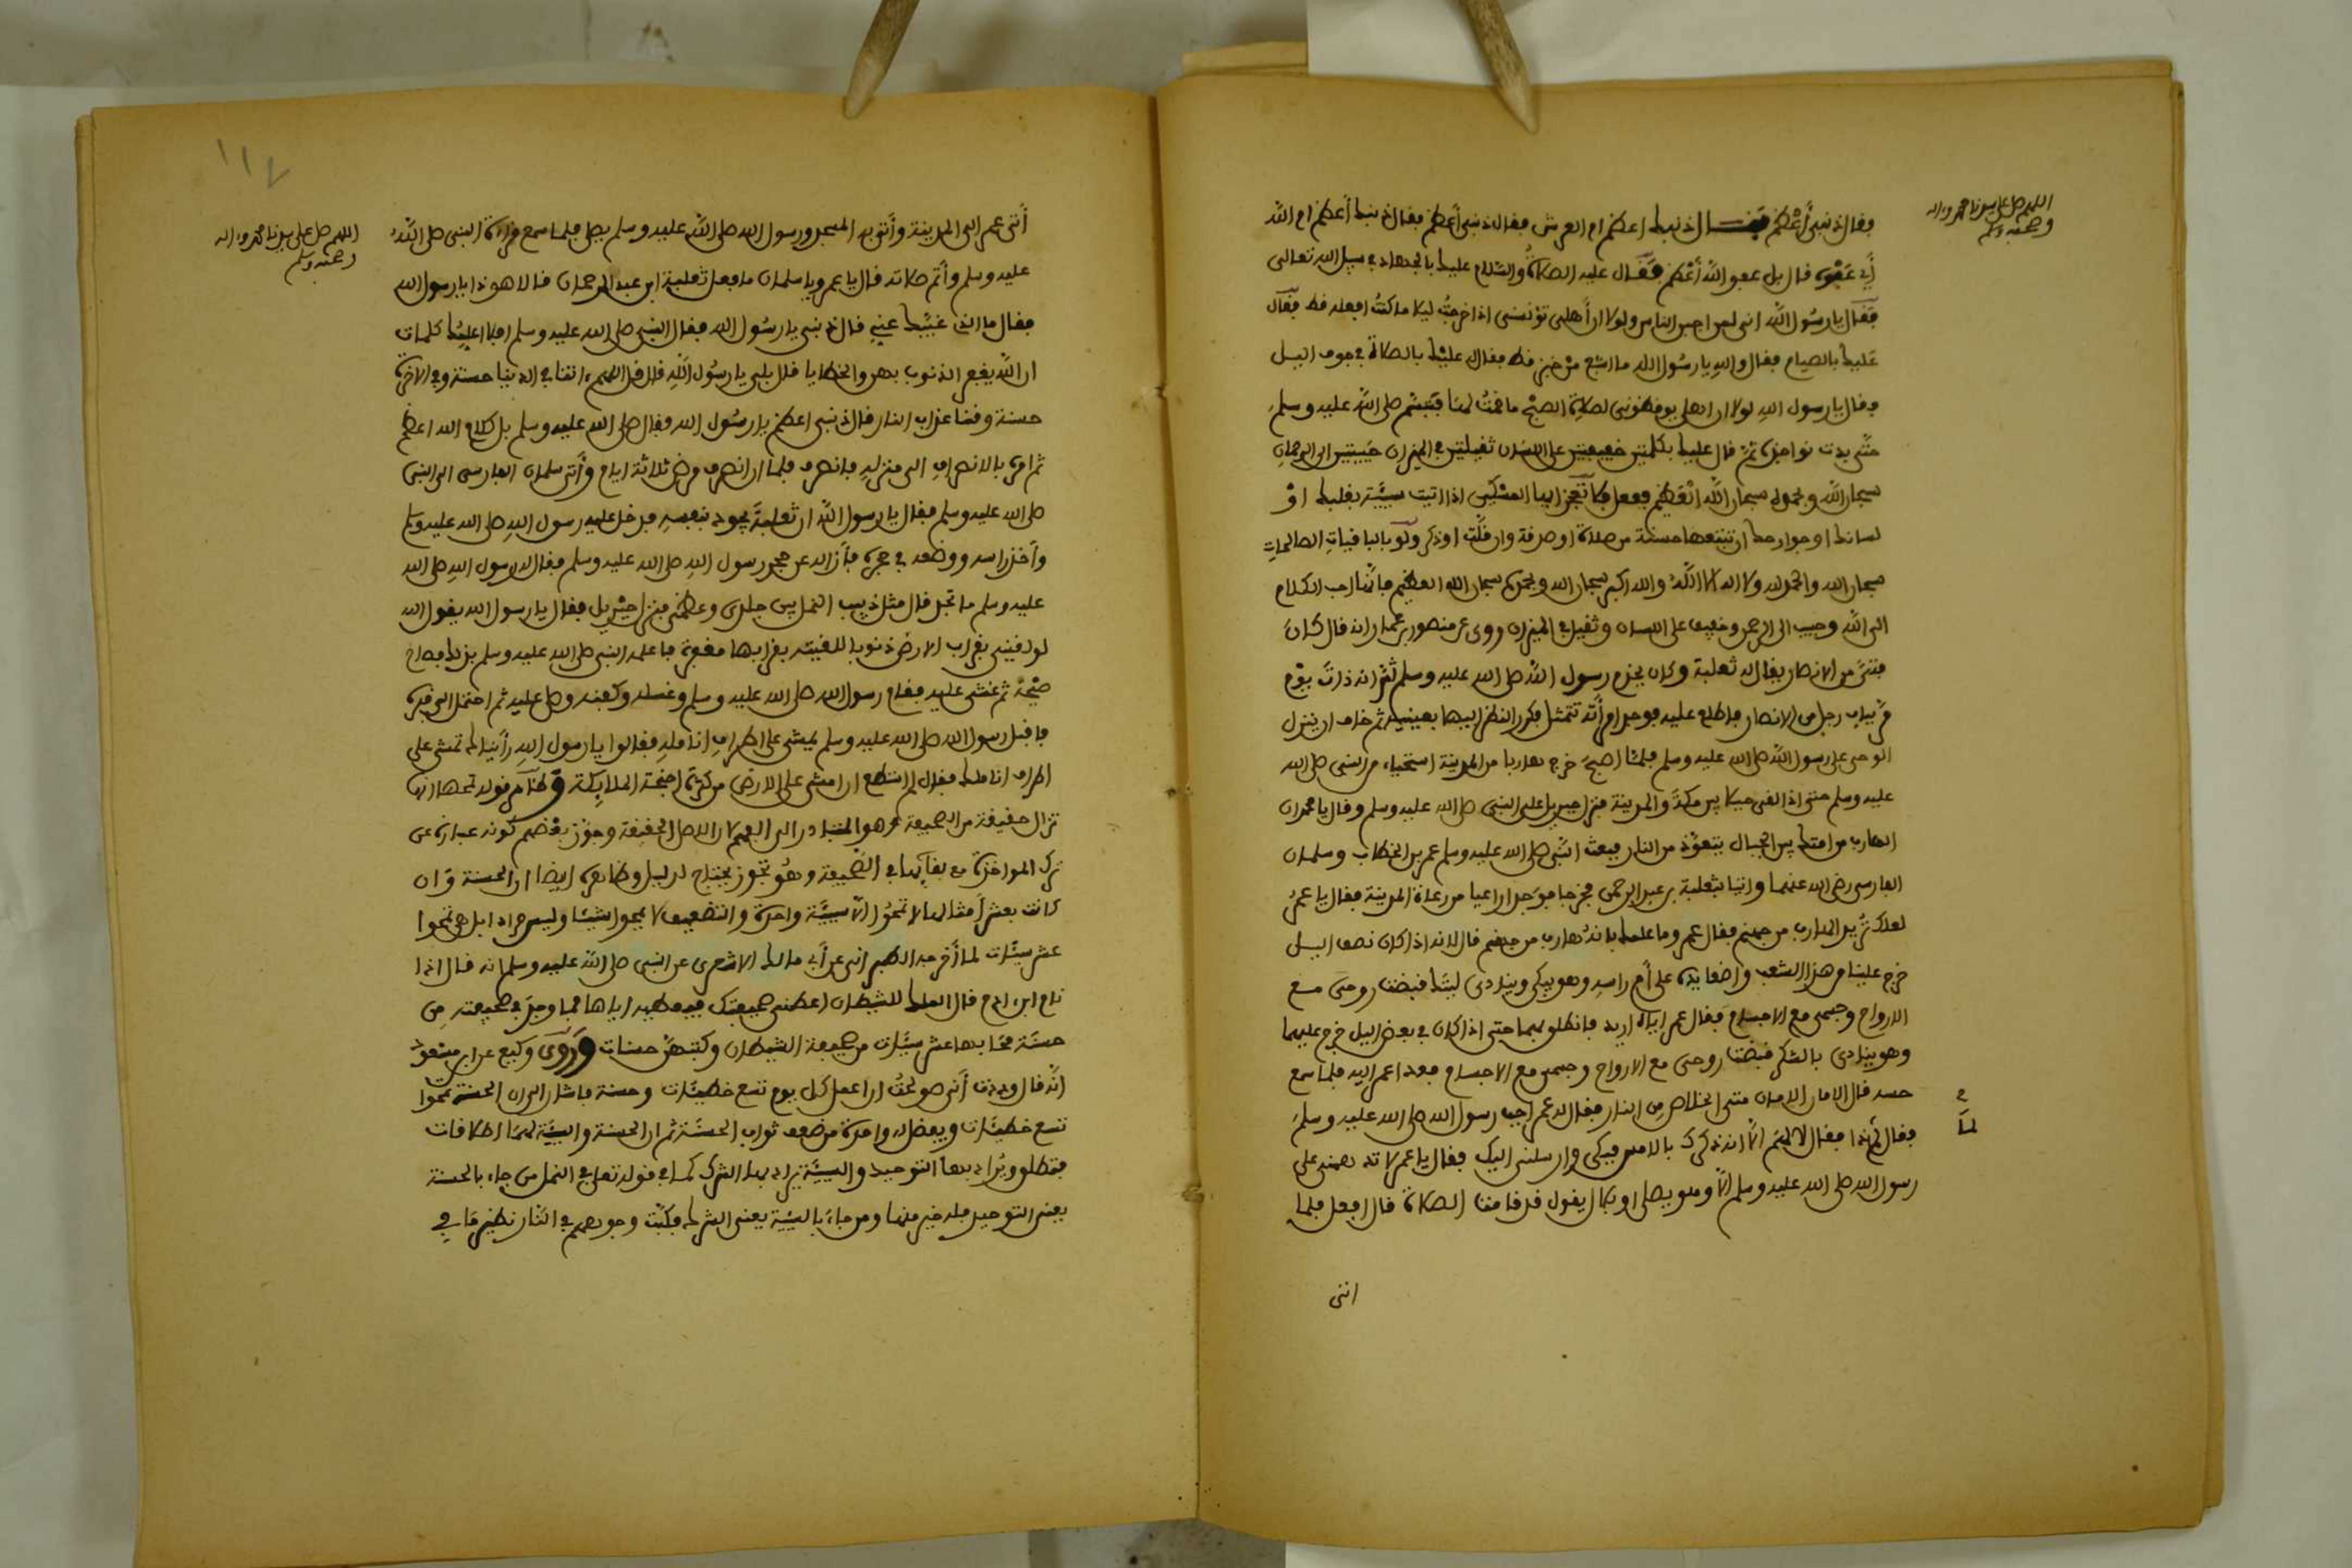 اللهم صل على سيدنا محمد وءاله
وصحبه وسلم
فقال ذنبي أعظم فقال ذنبك اعظم ام العرش فقال ذنبي أعظم فقال ذنبك أعظم ام الله
أي عفوه قال بل عفو الله أعظم فقال عليه الصلاة والسلام عليك بالجهاد في سبيل الله تعالى
فقال يا رسول الله اني لمن اجبن الناس ولولا ان أهلي تؤنسني اذا خرجت ليلا ما كنت افعله قط فقال
عليك بالصيام فقال والله يا رسول الله ما اشبع من خبز قط فقال عليك بالصلاة في جوف اليل
فقال يا رسول الله لولا ان اهلي يوقظونني لصلاة الصبح ما قمت لها فتبسم صلى الله عليه وسلم
حتى بدت نواجذه ثم قال عليك بكلمتين خفيفتين على اللسان ثقيلتين في الميزان حبيبتين الى الرحمان
سبحان الله وبحمده سبحان الله العظيم اذا اتيت سيئة بقلبك او
لسانك او جوارحك ان تتبعها حسنة من صلاة او صدقة وان قلت او ذكر ولو بالباقيات الصالحات
سبحان الله والحمد لله ولا اله الا الله والله اكبر سبحان الله وبحمده سبحان الله العظيم فانها احب الكلام
الى الله وحبيب الى الرحمن وخفيف على اللسان وثقيل في الميزان روى عن منصور بن عمار انه قال كان
فتى من الانصار يقال له ثعلبة وكان يخدم رسول الله صلى الله عليه وسلم ثم انه ذات يوم
مر بباب رجل من الانصار فاطلع عليه فوجد امرأته تتمشط فكرر النظر اليها بعينيه ثم خاف ان ينزل
الوحي على رسول الله صلى الله عليه وسلم فلما اصبح خرج هاربا من المدينة استحياء من النبي صلى الله
عليه وسلم حتى اذا لقي جبلا بين مكة والمدينة فنزل جبريل على النبي صلى الله عليه وسلم وقال يا محمد ان
الهارب من امتك بين الجبال يتعوذ من النار فبعث النبي صلى الله عليه وسلم عمر بن الخطاب وسلمان
الفارسي رضي الله عنهما واتيا بثعلبة بن عبد الرحمن فخرجا فوجدا راعيا من رعاة المدينة فقال يا عمر
لعلك تريد الهارب من جهنم فقال عمر وما علمك بانه هارب من جهنم قال لانه اذا كان نصف اليل
خرج علينا من هذا الشعب واضعا يده على أم راسه وهو يبكي وينادي ليتك قبضت روحي مع
الارواح وجسمي مع الاجسام فقال عمر اياه اريد فانطلق بهما حتى اذا كان في بعض اليل خرج عليهما
وهو ينادي قبضت روحي مع الارواح وجسمي مع الاجسام فعدا عمر اليه فلما سمع
حسه قال الامان الامان متى الخلاص من النار فقال له عمر اجب رسول الله صلى الله عليه وسلم
فقال لماذا فقال لا اعلم الا انه ذكرك بالامس فبكى وارسلني اليك فقال يا عمر لا تدخلني على
رسول الله صلى الله عليه وسلم الا وهو يصلي او بلال يقول قد قامت الصلاة قال افعل فلما
اتى
اللهم صل على سيدنا محمد وءاله
وصحبه وسلم
١١٧
أتى عمر الى المدينة وأتى به المسجد ورسول الله صلى الله عليه وسلم يصلي فلما سمع قراءة النبي صلى الله
عليه وسلم وأتم صلاته قال يا عمر ويا سلمان ما فعل ثعلبة ابن عبد الرحمان قالا هو ذا يا رسول الله
فقال ما الذي غيبك عني قال ذنبي يا رسول الله فقال النبي صلى الله عليه وسلم افلا اعلمك كلمات
ان الله يغفر الذنوب بهن والخطايا قال بلى يا رسول الله قال قل اللهم ءاتنا في الدنيا حسنة وفي الاخرة
حسنة وقنا عذاب النار قال ذنبي اعظم يا رسول الله فقال صلى الله عليه وسلم بل كلام الله اعظم
ثم امره بالانصراف الى منزله فانصرف فلما ان انصرف مرض ثلاثة ايام وأتى سلمان الفارسي الى النبي
صلى الله عليه وسلم فقال يا رسول الله ان ثعلبة يجود بنفسه فدخل عليه رسول الله صلى الله عليه وسلم
وأخذ راسه ووضعه في حجره فأزاله عن حجر رسول الله صلى الله عليه وسلم فقال له رسول الله صلى الله
عليه وسلم ما تجد قال مثل دبيب النمل بين جلدي وعظمي فنزل جبريل فقال يا رسول الله يقول الله
لو لقيني بقراب الارض ذنوبا للقيته بقرابها مغفرة فاعلمه النبي صلى الله عليه وسلم بذلك فصاح
صيحة ثم غشي عليه فقام رسول الله صلى الله عليه وسلم وغسله وكفنه وصلى عليه ثم احتمل الى قبره
فاقبل رسول الله صلى الله عليه وسلم يمشي على اطراف انامله فقالوا يا رسول الله رأيناك تمشي على
اطراف اناملك فقال لم استطع ان امشي على الارض من كثرة اجنحة الملايكة وظاهر قوله تمحها انها
تزال حقيقة من الصحيفة وهو المتبادر الى الفهم لان الاصل الحقيقة وجوز بعضهم كونه عبارة عن
ترك المواخذة مع بقائها في الصحيفة وهو تجوز يحتاج لدليل وظاهره ايضا ان الحسنة وان
كانت بعشر أمثالها لا تمحو الا سيئة واحدة والتضعيف لا يمحوا شيئا وليس مرادا بل هي تمحوا
عشر سيئات لما أخرجه الطبراني عن أبي مالك الاشعري عن النبي صلى الله عليه وسلم انه قال اذا
نام ابن ادم قال الملك للشيطان اعطني صحيفتك فيعطيه اياها فما وجد في صحيفته من
حسنة محا بها عشر سيئات من صحيفة الشيطان وكتبهن حسنات وروى وكيع عن ابن مسعود
انه قال وددت أني صولحت ان اعمل كل يوم تسع خطيئات وحسنة فاشار الى ان الحسنة تمحوا
تسع خطيئات ويفضل له واحدة من ضعف ثواب الحسنة ثم ان الحسنة والسيئة لهما اطلاقات
فتطلق ويراد بها التوحيد والسيئة يراد بها الشرك كما في قوله تعالى في النمل من جاء بالحسنة
يعني التوحيد فله خير منها ومن جاء بالسيئة يعني الشرك فكبت وجوههم في النار نظير ما في